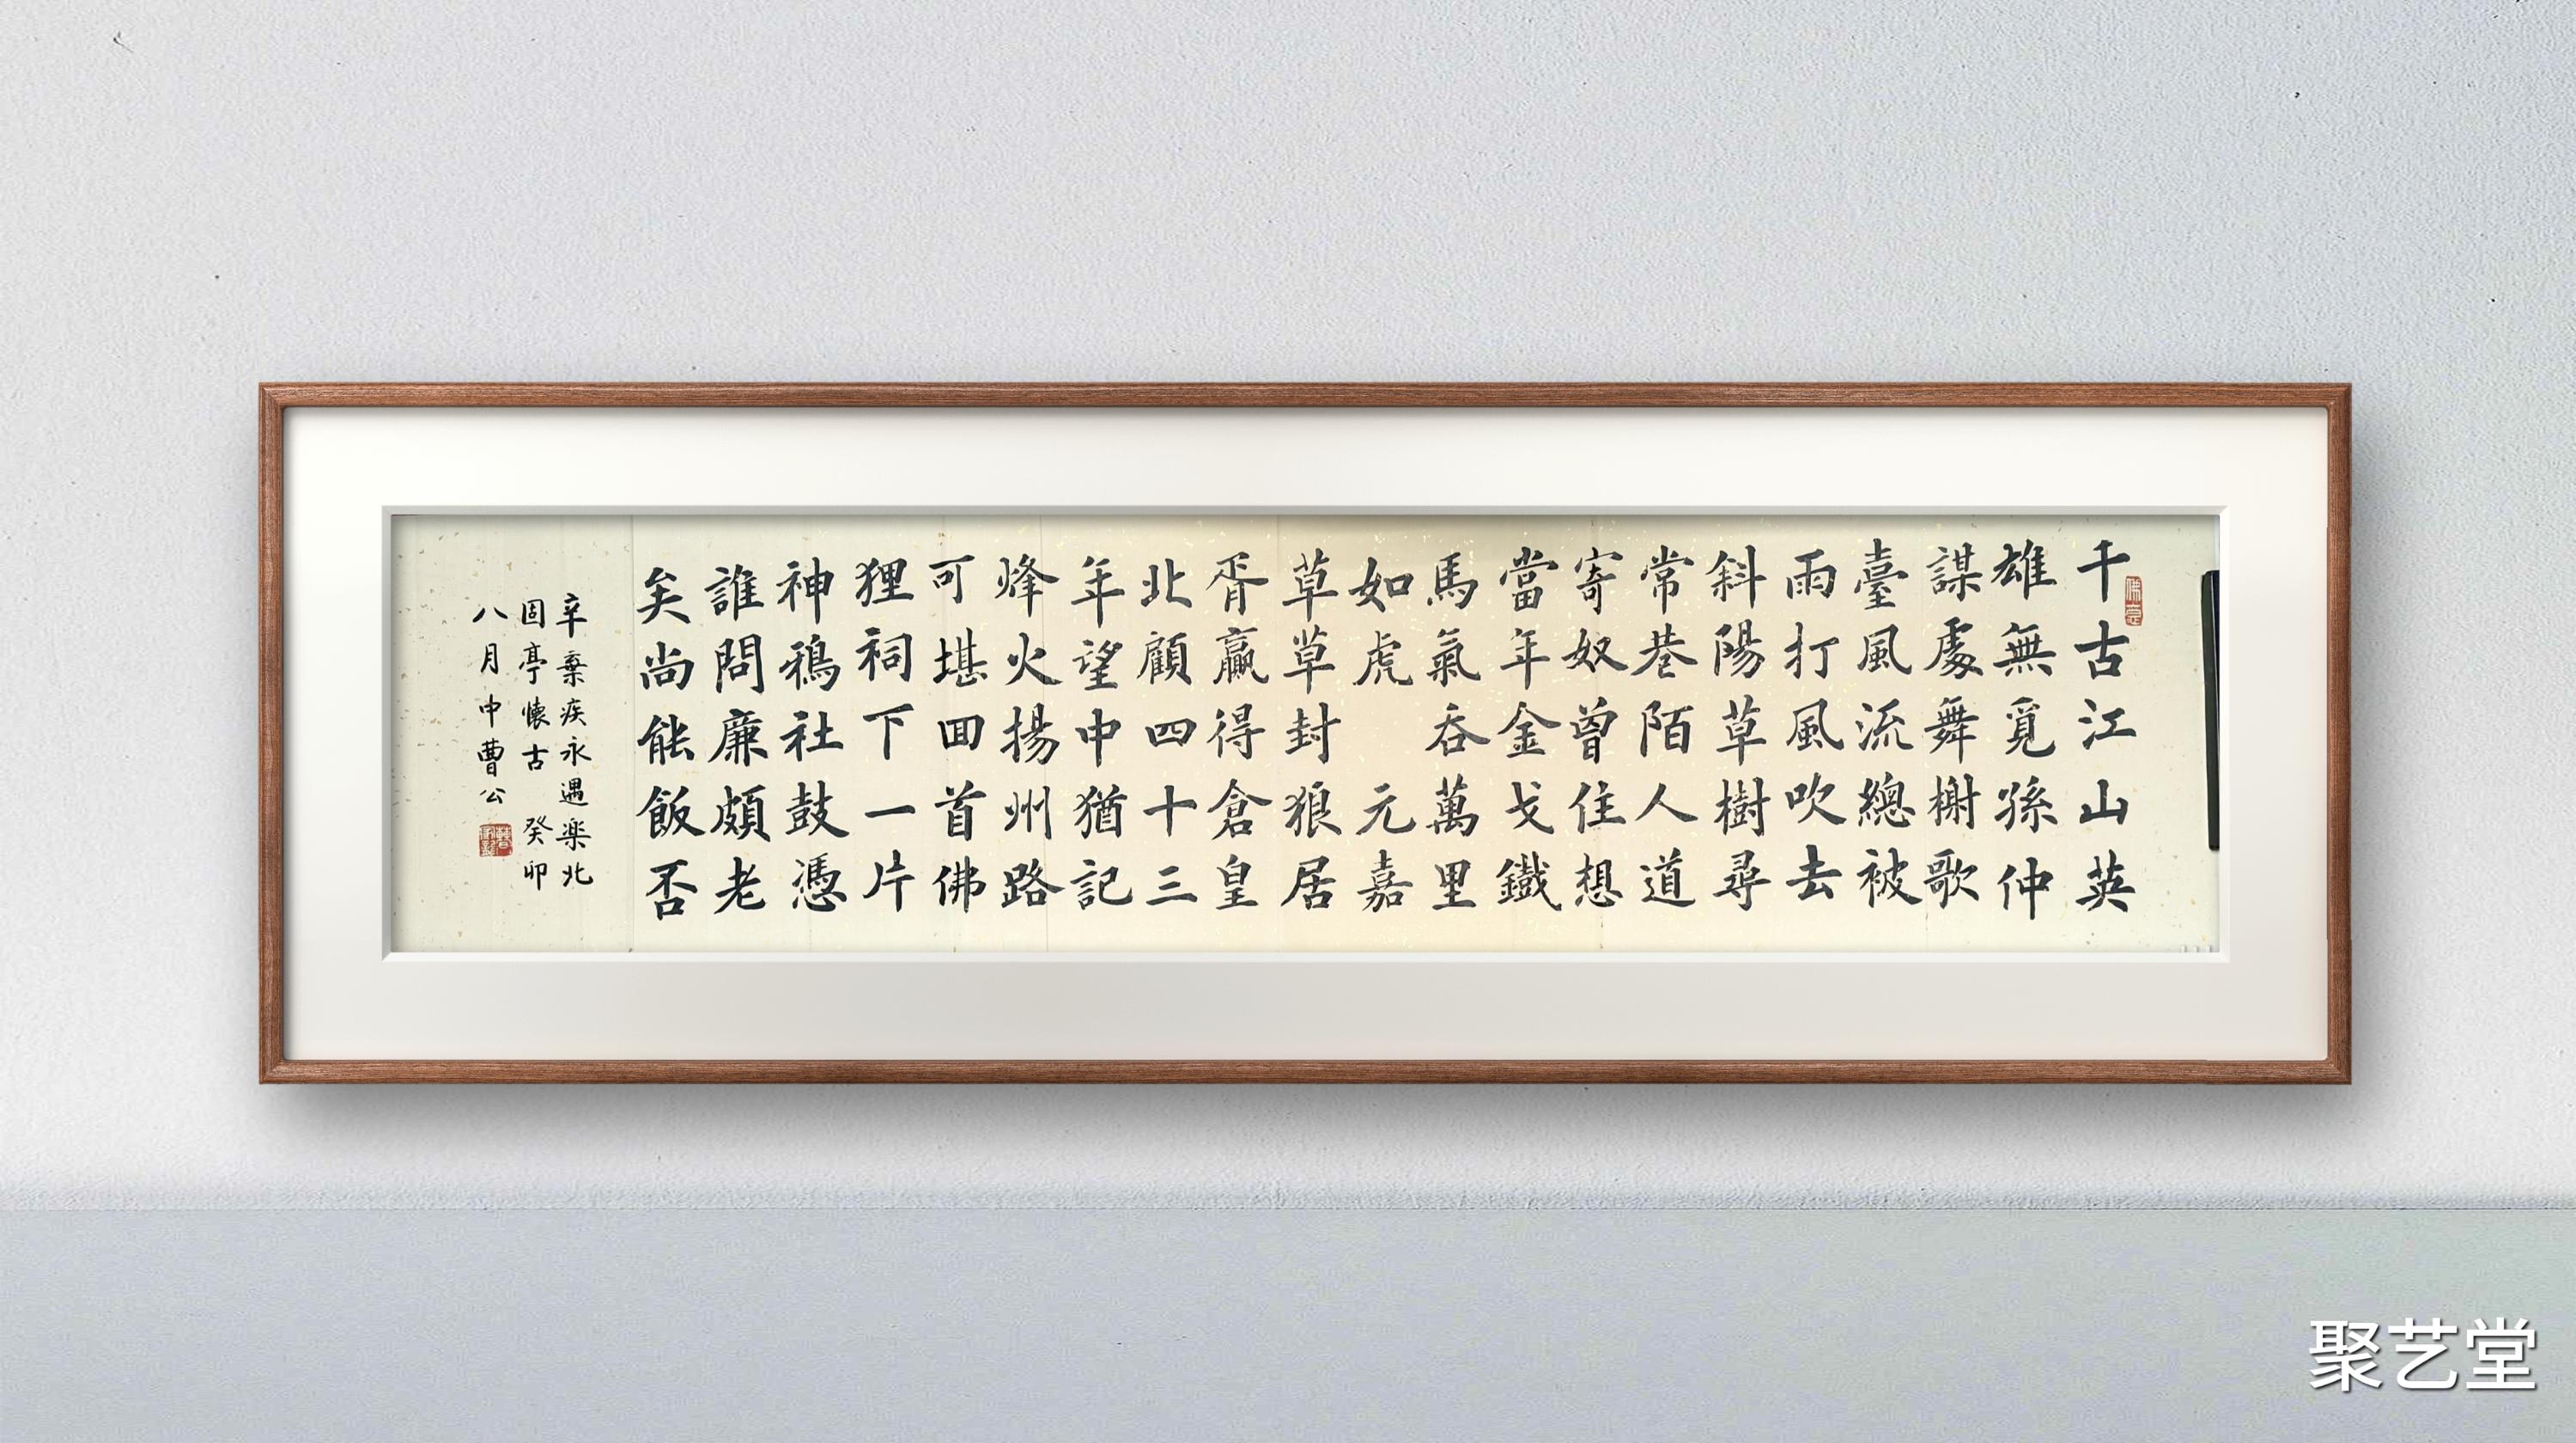 千古江山英
雄無覓孫仲
謀處舞榭歌
臺風流總被
雨打風吹去
斜陽草樹尋
常巷陌人道
寄奴曾住想
當年金戈鐵
馬氣吞萬里
如虎 元嘉
草草封狼居
胥贏得倉皇
北顧四十三
年望中猶記
烽火揚州路
可堪囬首佛
狸祠下一片
神鴉社鼓憑
誰問廉頗老
矣尚能飯否
辛棄疾永遇楽北
固亭懐古 癸卯
八月中曹公
聚艺堂